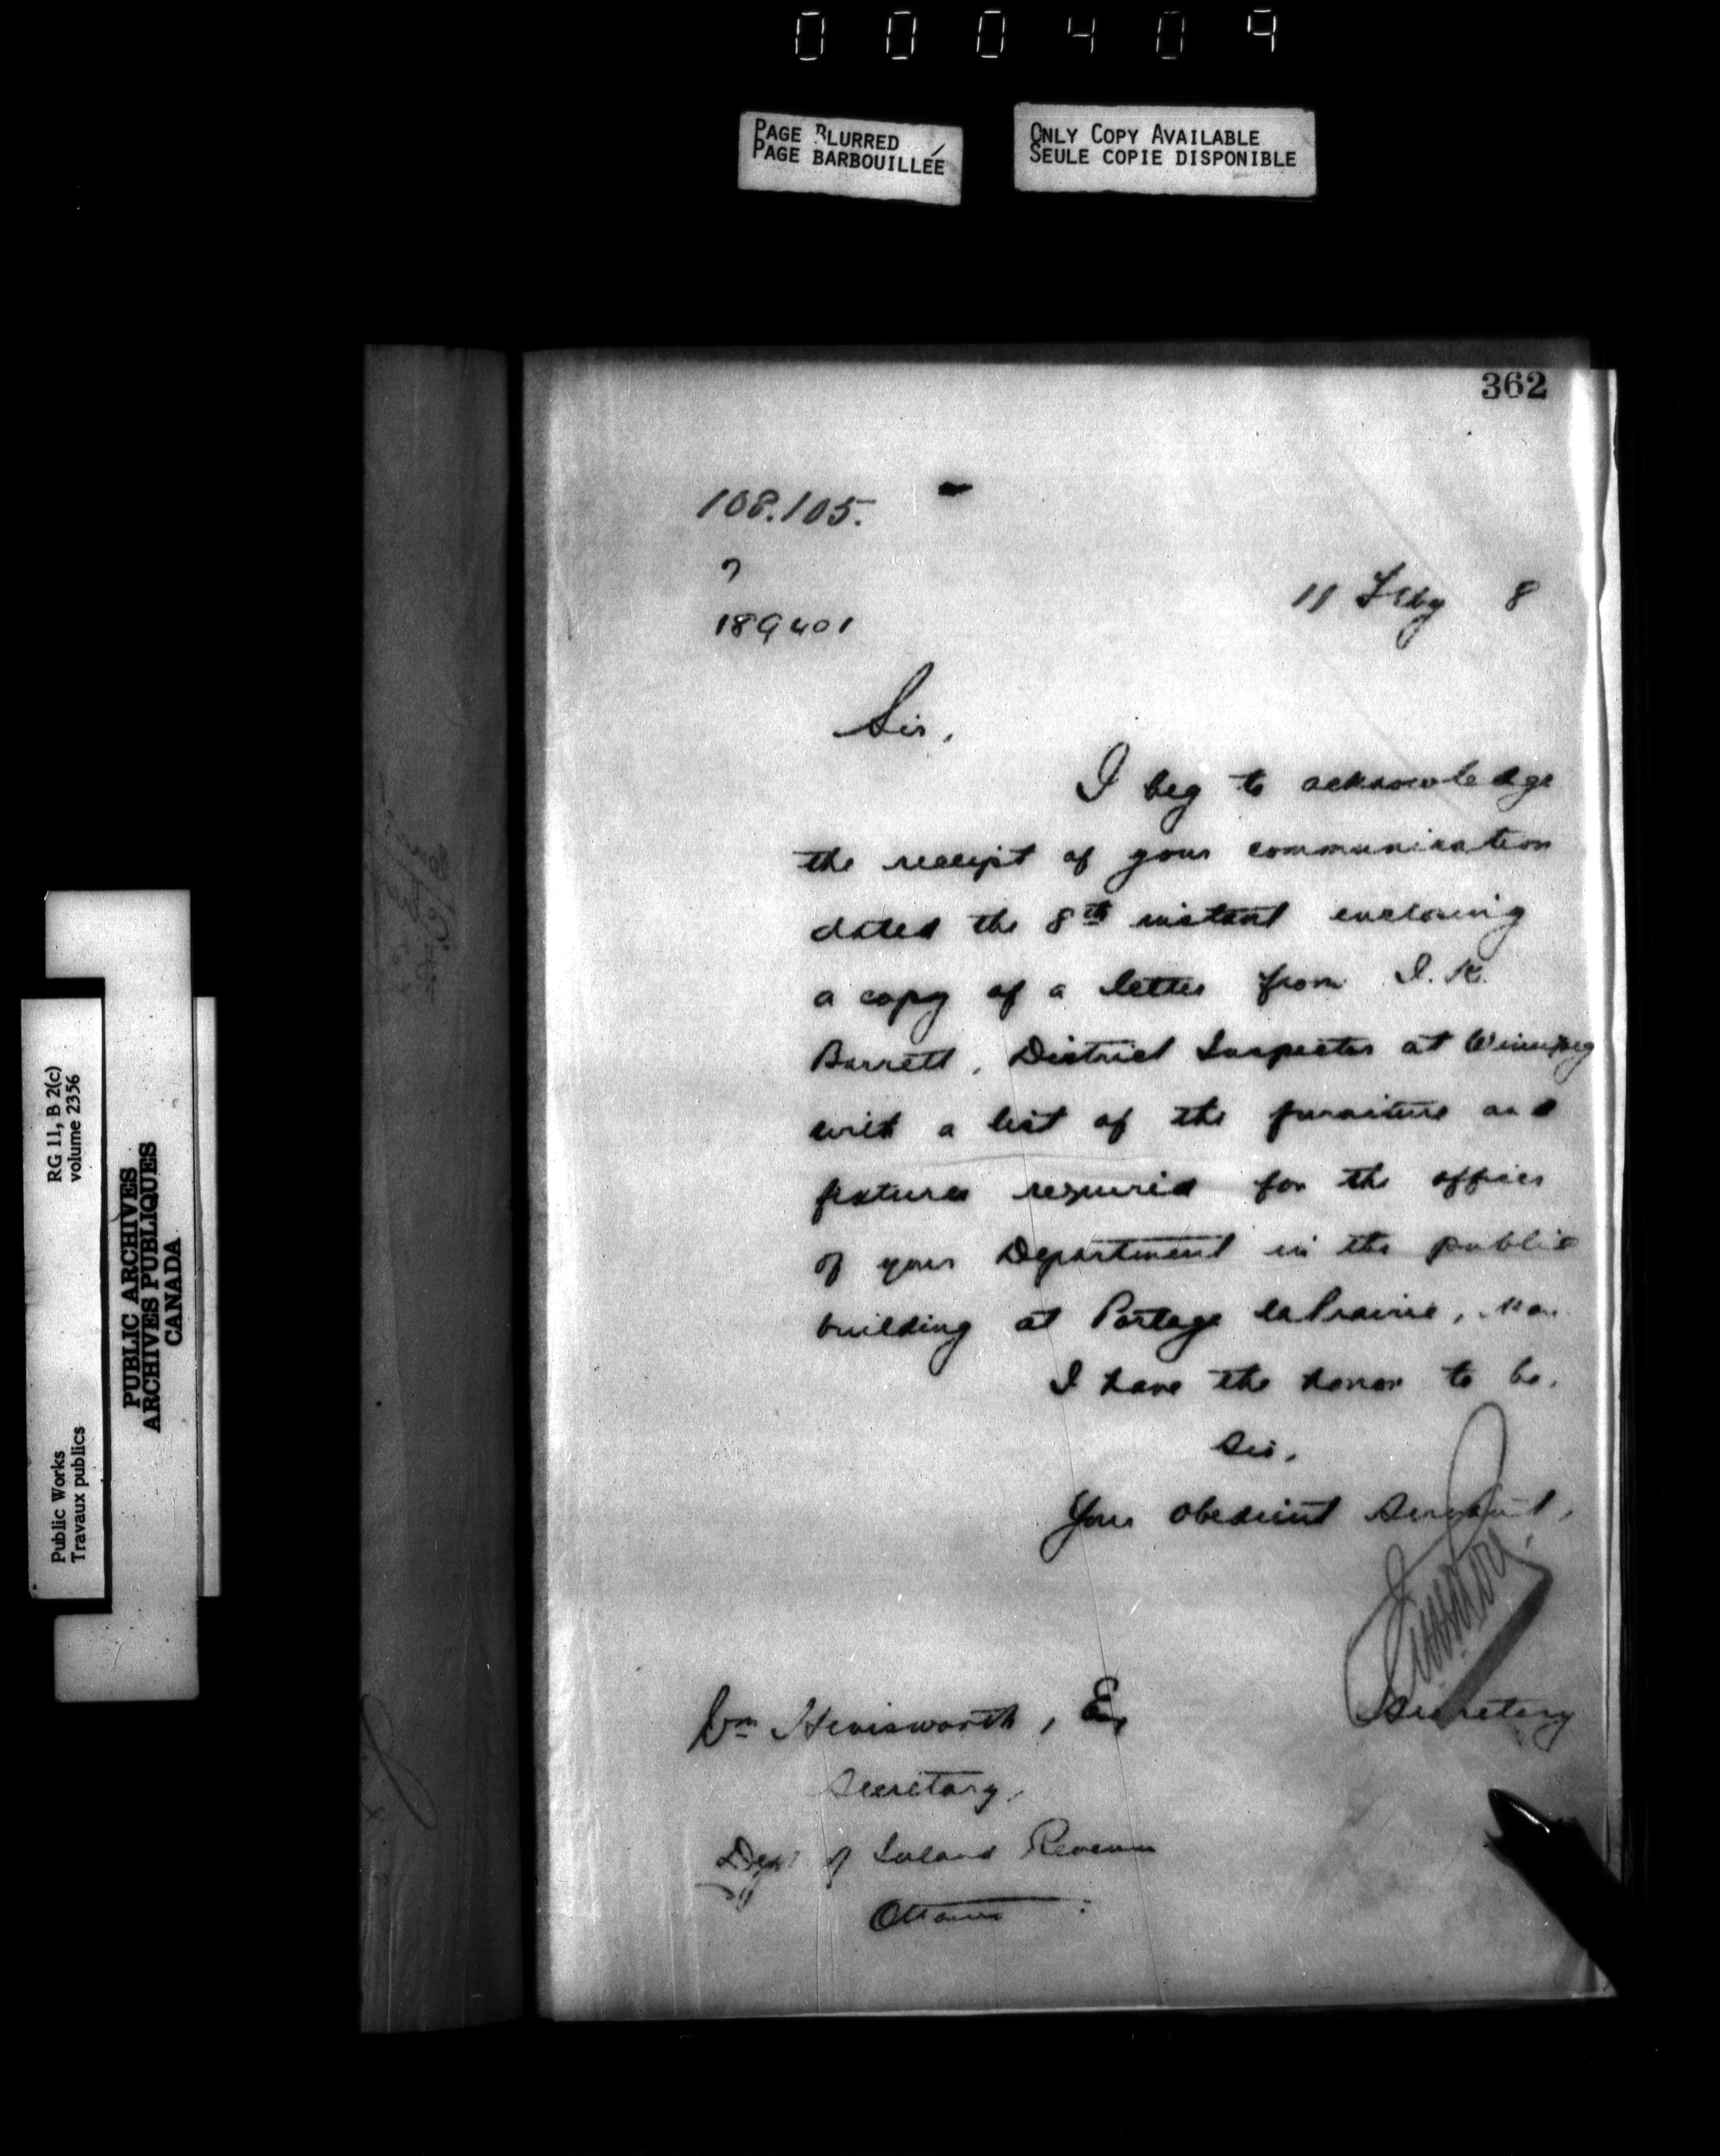 000409
PAGE BLURRED
PAGE BARBOUILLÉE
ONLY COPY AVAILABLE
SEULE COPIE DISPONIBLE
RG 11, B 2(c)
volume 2356
PUBLIC ARCHIVES
ARCHIVES PUBLIQUES
CANADA
Public Works
Travaux publics
362
108.105.
7
189401
11 Feby 8
Sir,
I beg to acknowledge
the receipt of your communication
dated the 8th instant enclosing
a copy of a letter from I. K.
Barrett, District Inspector at Winnipeg
with a list of the furniture and
fixtures required for the offices
of your Department in the public
building at Portage laPrairie, Man.
I have the honor to be,
Sir,
Your obedient Servant,
Secretary
Wm Himsworth, E
Secretary,
Dept of Inland Revenue
Ottawa